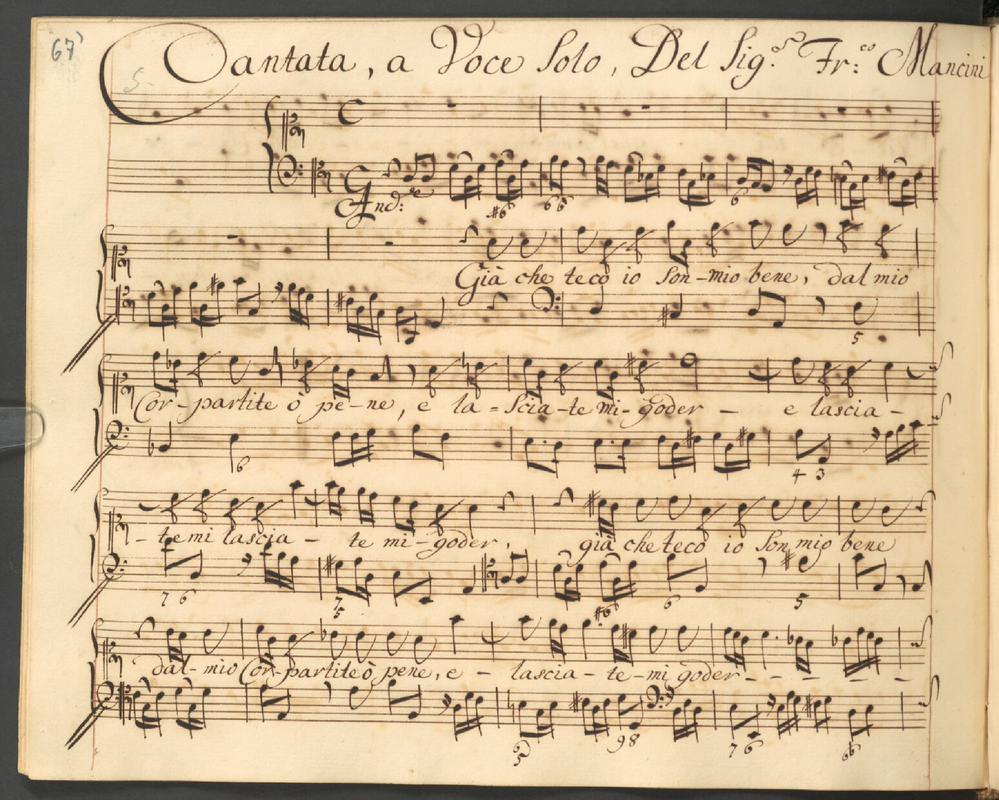 67
5.
Cantata, a Voce Solo, Del Sig.re Fr:co Mancini
And:te
#6 6 6 6
Già che teco io Son-mio bene, dal mio
5
Cor-partite ò pe-ne, e la=scia-te mi-goder - e lascia-
6 4 3
-te mi lascia- te mi-goder, già che teco io Son mio bene
7 6 7 5 #6 6 5
dal-mio Cor-partite ò pene, e - lascia-te-mi goder- - - - - - -
5 9 8 7 6 6